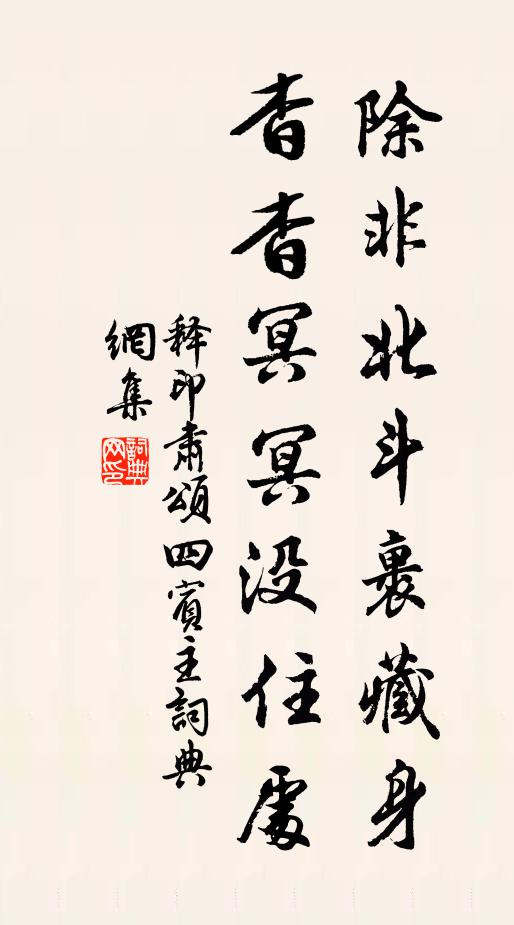 除非北斗裏藏身
杳杳冥冥没住處
释印肅頌四賓主詞典
網集
詞典
网印